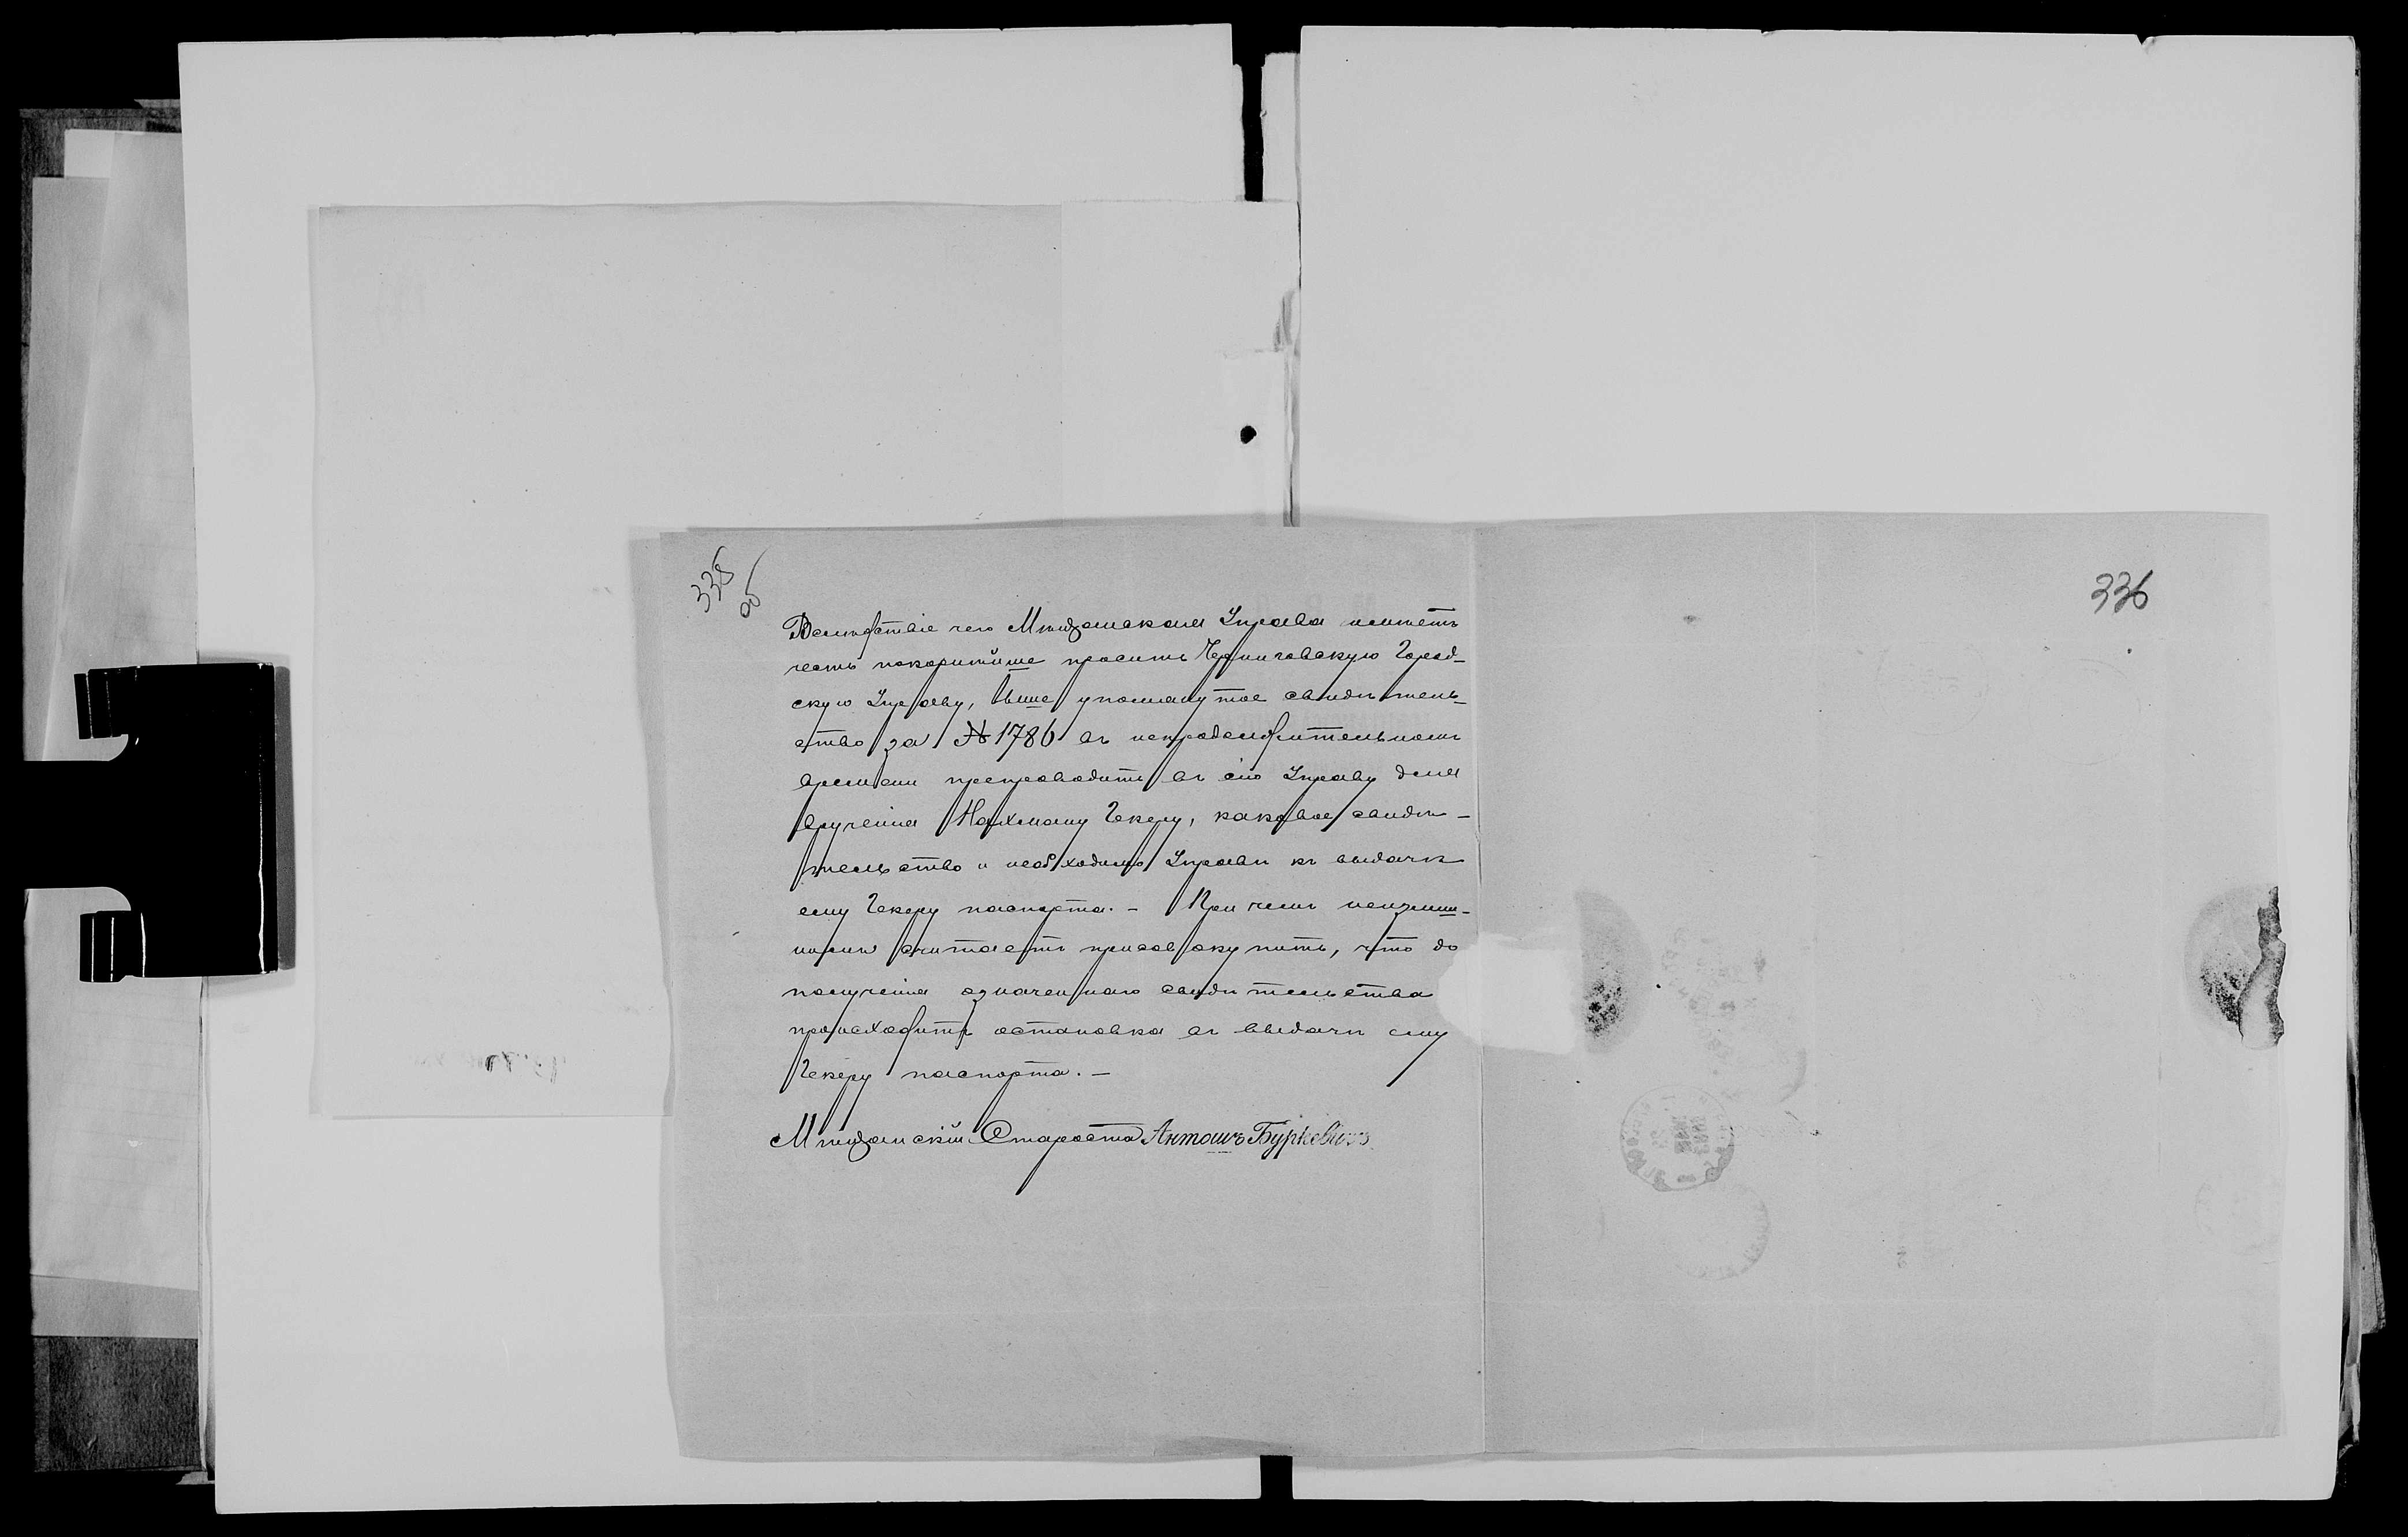 335
об
336
Вслѣдствіе чего Мѣщанская Управа имѣетъ
честь покорнѣйше просить Черниговскую Город-
скую Управу, выше упомянутое свидѣтель-
ство за № 1786 въ непродолжительномъ
времени препроводить въ сію Управу для
врученія Нахману Чекеру, каковое свидѣ-
тельство и необходимо Управѣ къ выдачѣ
ему Чекеру паспорта. - При чемъ неизлиш-
нимъ считаетъ присовокупить, что до
полученія означеннаго свидѣтельства
происходитъ остановка въ выдачѣ ему
Чекеру паспорта. -
Мѣщанскій Староста Антонъ Буркевичъ